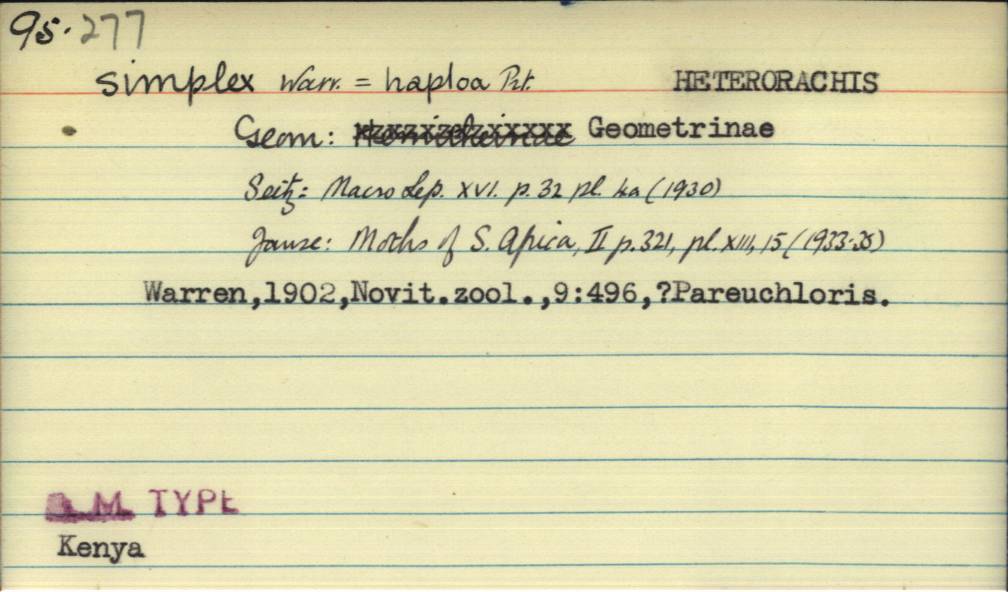 95.277
simplex Warr. = haploa Prt. HETERORACHIS
Geom: Hemitheinae Geometrinae
Seitz: Macro Lep. XVI. p. 32 pl. 4a (1930)
Janse: Moths of S. Africa, II p. 321, pl. XIII, 15 (1933-35)
Warren,1902,Novit.zool.,9:496,?Pareuchloris.
B.M. TYPE
Kenya